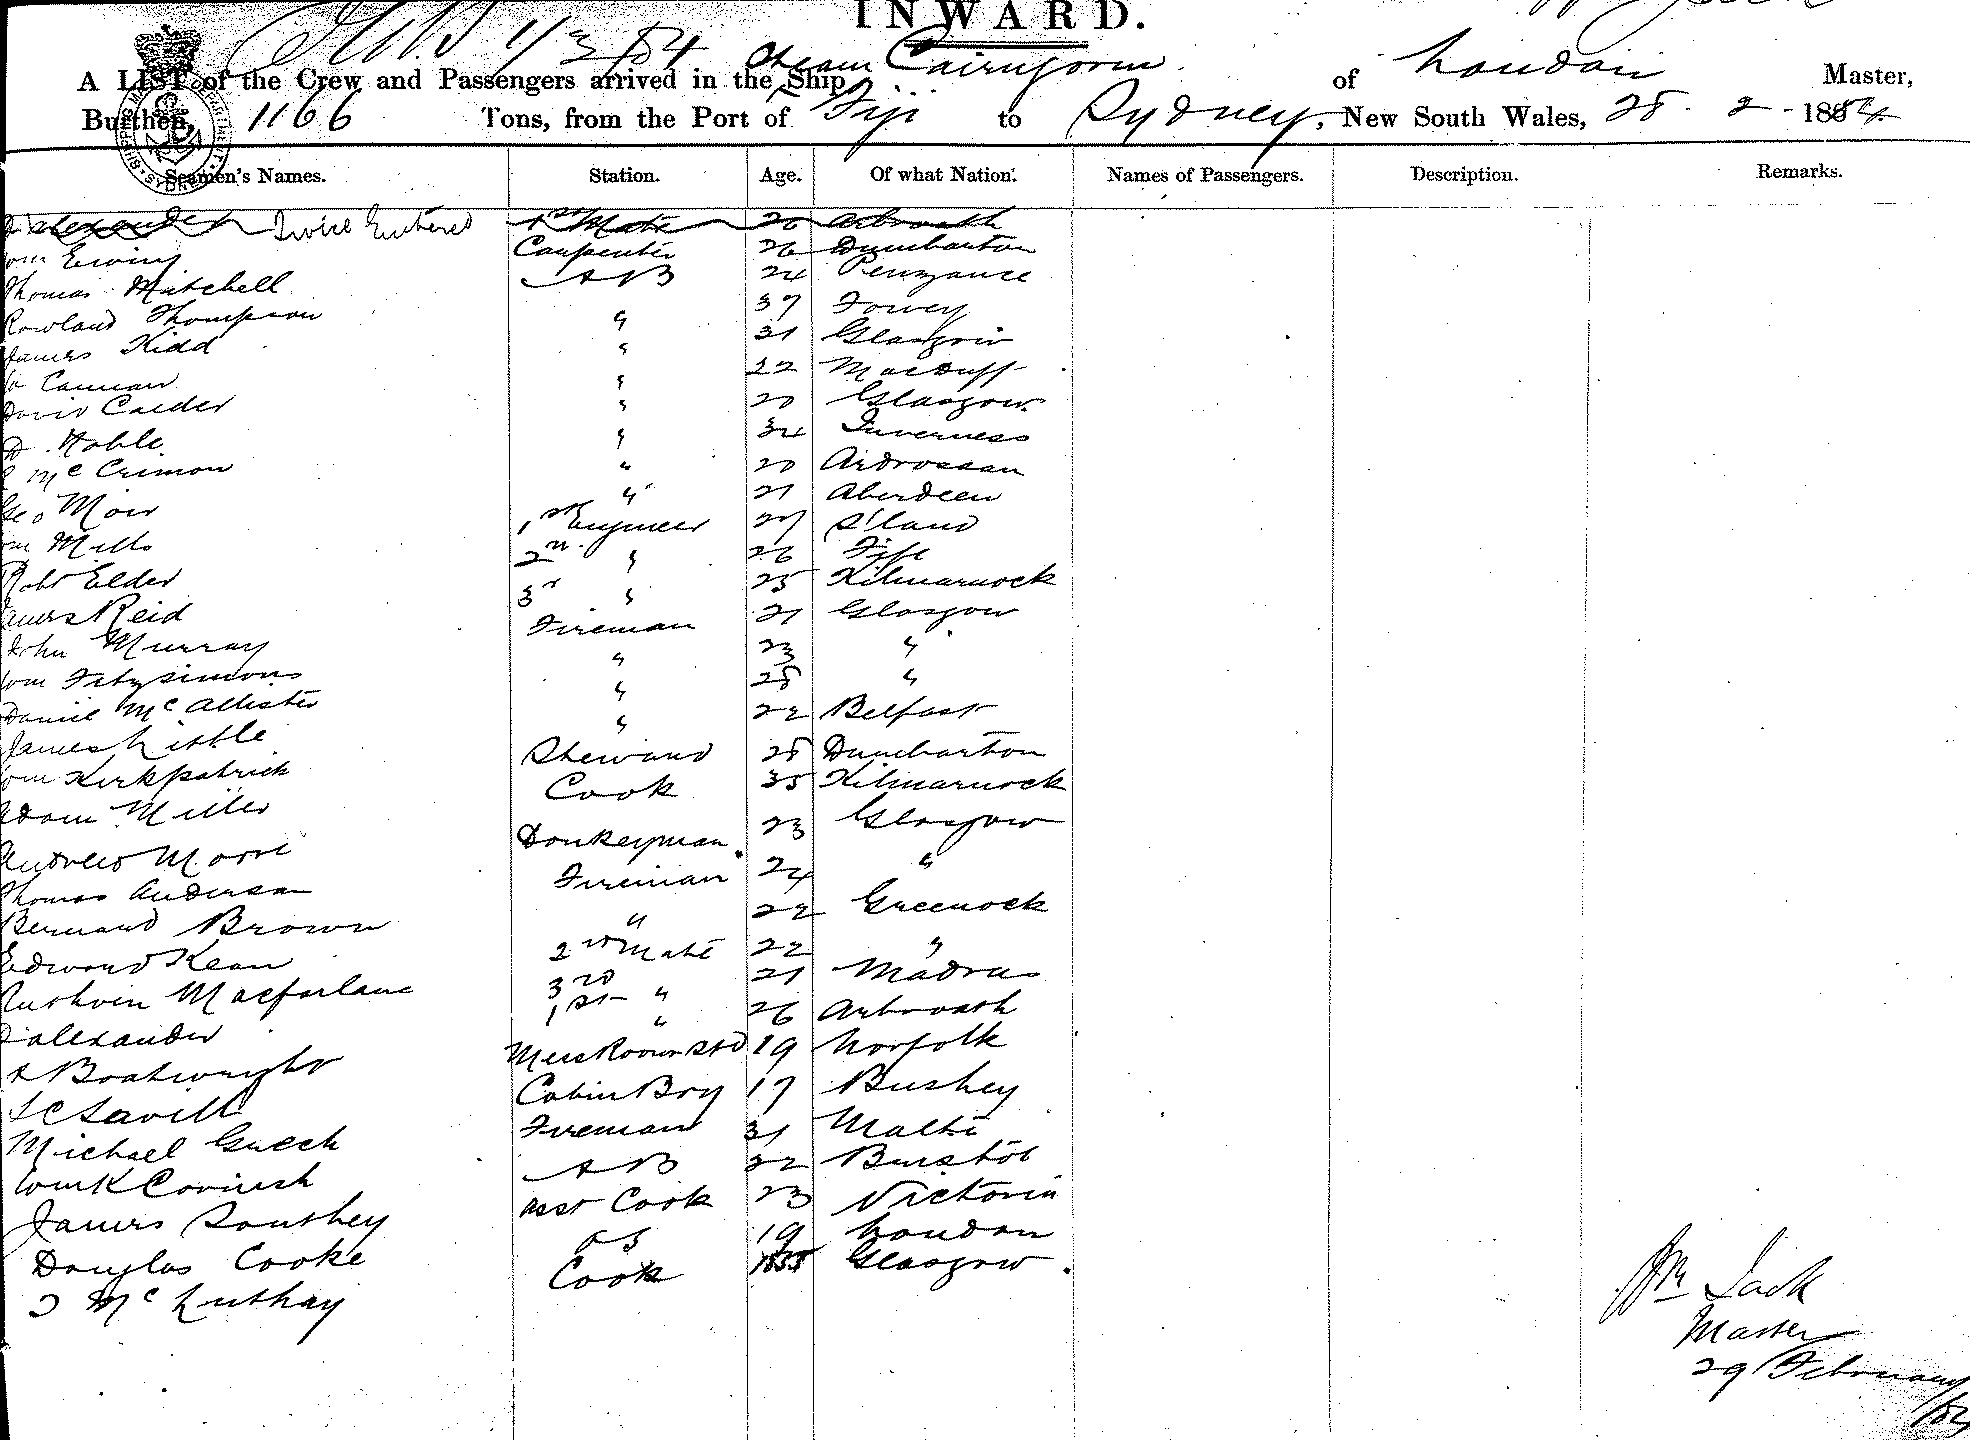 INWARD.
1/3/84
A LIST of the Crew and Passengers arrived in the Ship Steam Cairngorm of London Master,
Burthen, 1166 Tons, from the Port of Fiji to Sydney, New South Wales, 28 - 2 - 1884
Seamen's Names. Station. Age. Of what Nation. Names of Passengers. Description. Remarks.
D Alexander Twice Entered 1st Mate 26 Arbroath
Wm Ewing Carpenter 26 Dumbarton
Thomas Mitchell AB 24 Penzance
Rowland Thompson " 37 Fowey
James Kidd " 31 Glasgow
Cannan " 22 Macduff
David Calder " 20 Glasgow
D Noble " 34 Inverness
McCrimon " 20 Ardrossan
Geo Moir " 21 Aberdeen
Wm Mills 1st Engineer 27 S'land
Robt Elder 2n " 26 Fife
James Reid 3r " 25 Kilmarnock
John Murray Fireman 21 Glasgow
Wm Fitzsimons " 23 "
Daniel McAllister " 28 "
James Little " 22 Belfast
Wm Kirkpatrick Steward 28 Dumbarton
Adam Miller Cook 35 Kilmarnock
Andrew Moore Donkeyman 23 Glasgow
Thomas Anderson Fireman 24 "
Bernard Brown " 22 Greenock
Edward Kean 2nd Mate 22 "
Ruthven Macfarlane 3rd " 21 Madras
D Alexander 1st " 26 Arbroath
A Boatwright Mess Room Std 19 Norfolk
Savill Cabin Boy 17 Bushey
Michael Grech Fireman 31 Malta
Wm K Cornish AB 22 Bristol
James Southey Asst Cook 23 Victoria
Douglas Cooke OS 19 London
McLuthay Cook Glasgow
Wm Jack
Master
29 February
/84